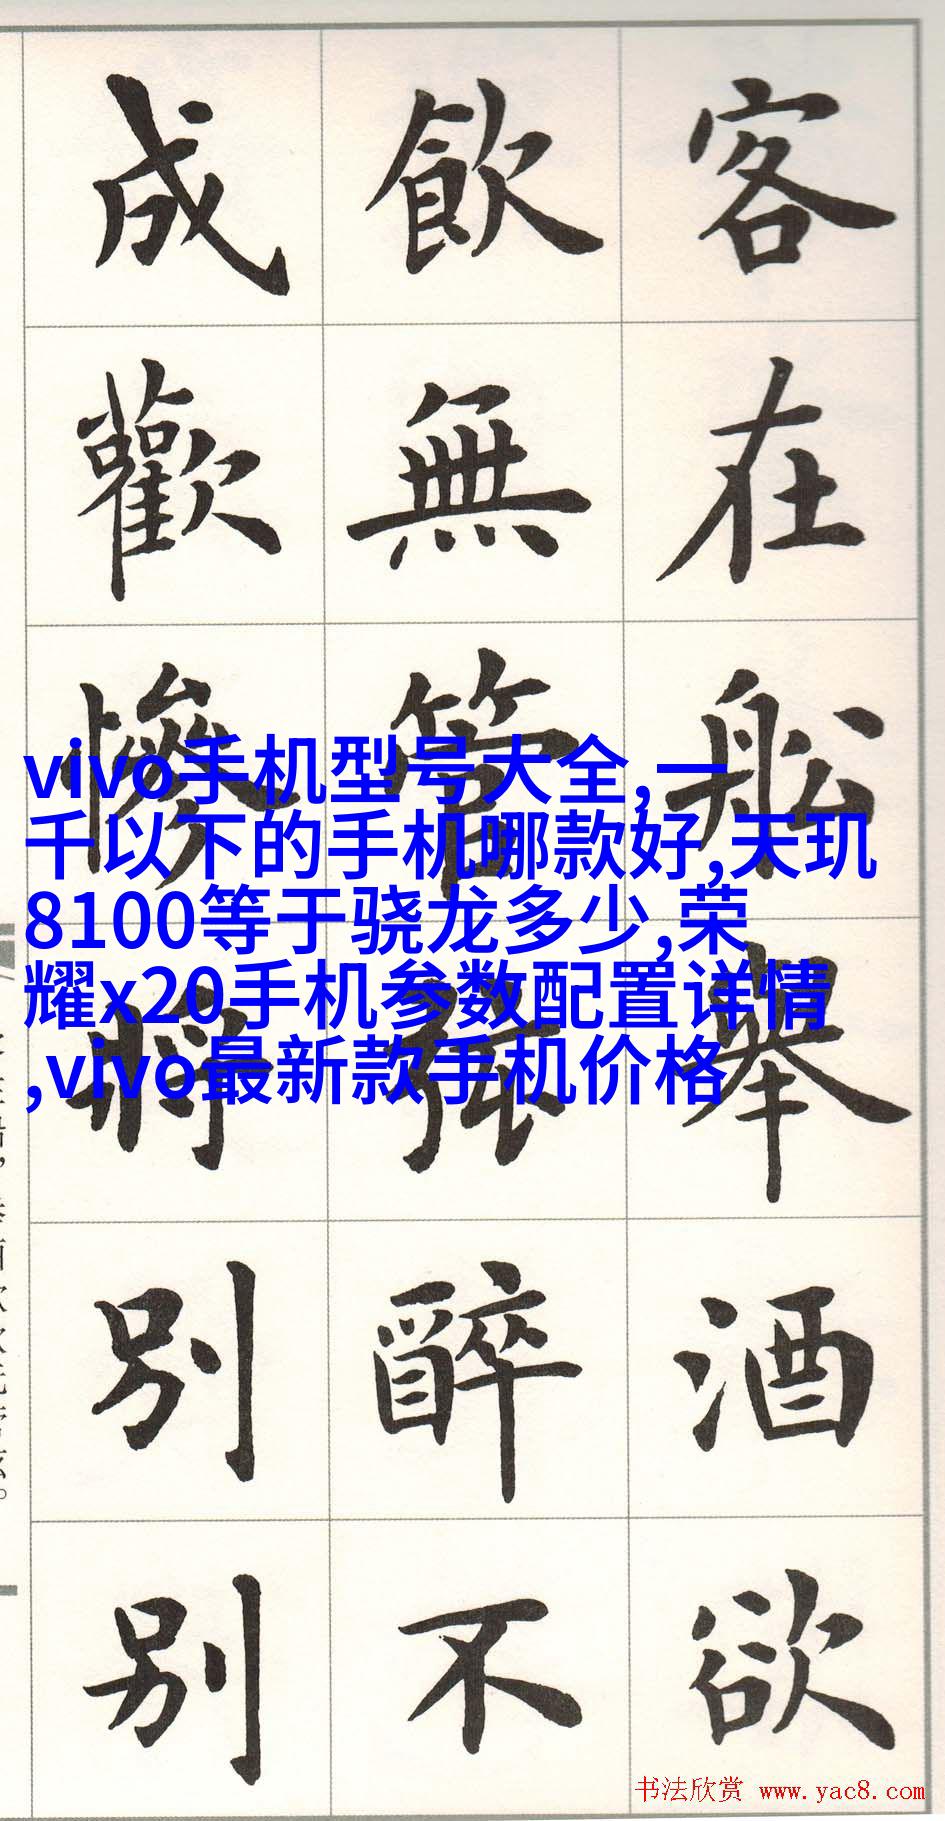 客在舩舉酒欲
飲無管醉不
成歡慘將別別
vivo手机型号大全,一
千以下的手机哪款好,天玑
8100等于骁龙多少,荣
耀x20手机参数配置详情
,vivo最新款手机价格
书法欣赏 www.yac8.com